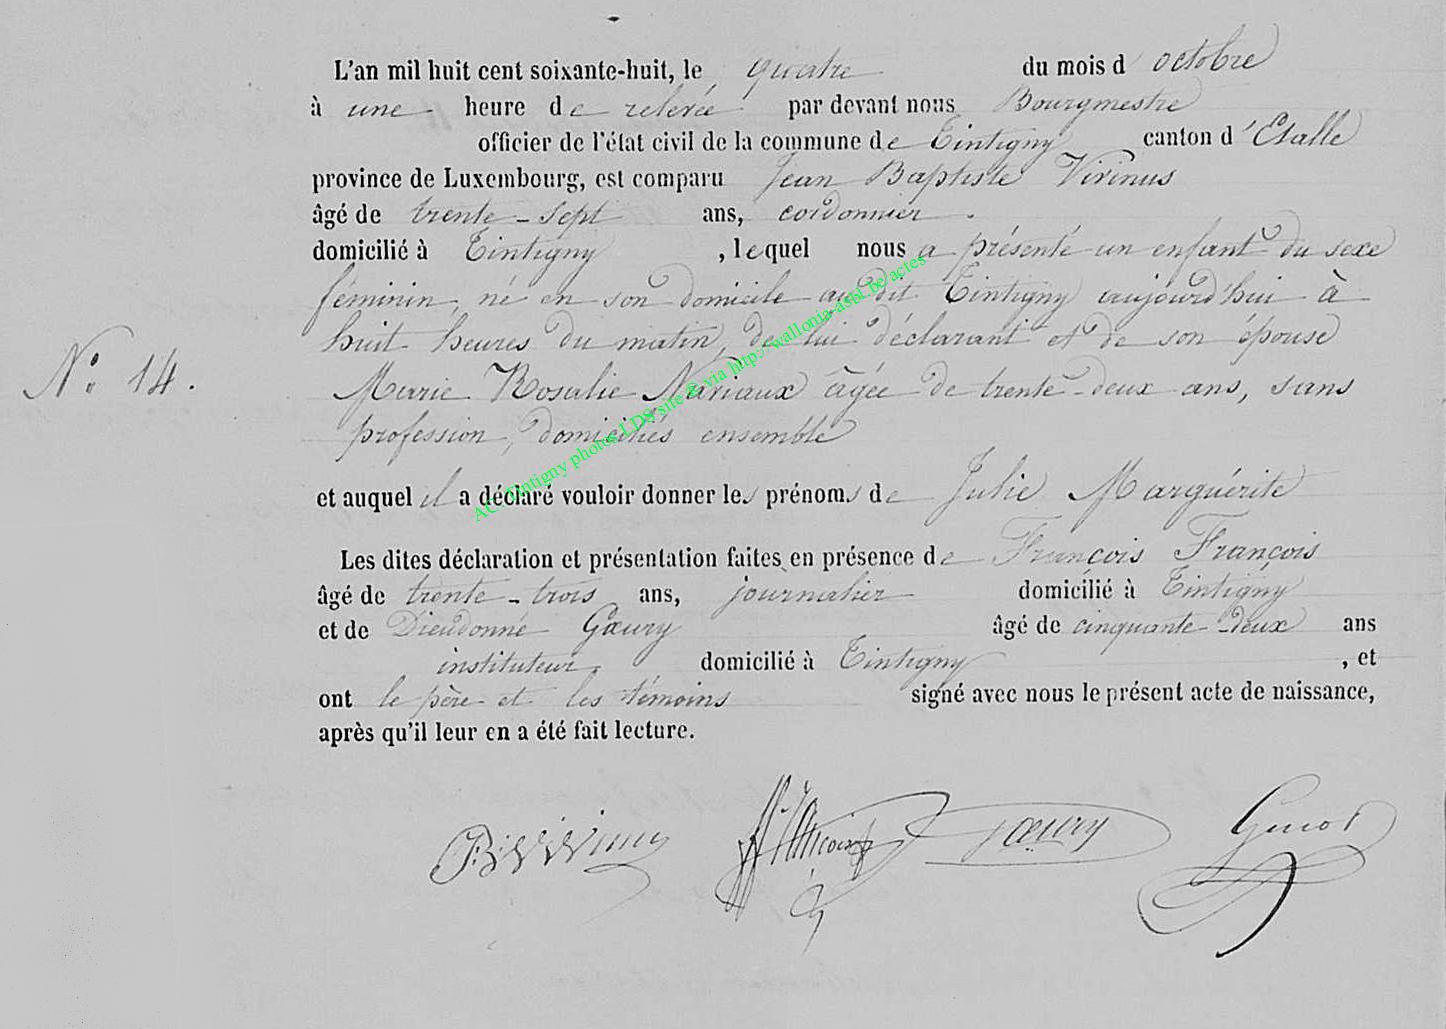 L'an mil huit cent soixante-huit, le quatre du mois d octobre
à une heure de relevée par devant nous Bourgmestre
officier de l'état civil de la commune de Tintigny canton d'Etalle
province de Luxembourg, est comparu Jean Baptiste Virinus
âgé de trente-sept ans, cordonnier.
domicilié à Tintigny, lequel nous a présenté un enfant du sexe
féminin, né en son domicile au dit Tintigny aujourd'hui à
huit heures du matin, de lui déclarant et de son épouse
N° 14. Marie Rosalie Nariaux âgée de trente-deux ans, sans
profession, domiciliés ensemble
et auquel il a déclaré vouloir donner les prénoms de Julie Marguérite
Les dites déclaration et présentation faites en présence de François François
âgé de trente-trois ans, journalier domicilié à Tintigny
et de Dieudonné Gœury âgé de cinquante-deux ans
instituteur, domicilié à Tintigny, et
ont le père et les témoins signé avec nous le présent acte de naissance,
après qu'il leur en a été fait lecture.
Gœury
AC Tintigny photos LDS site © via http://wallonia-asbl.be/actes